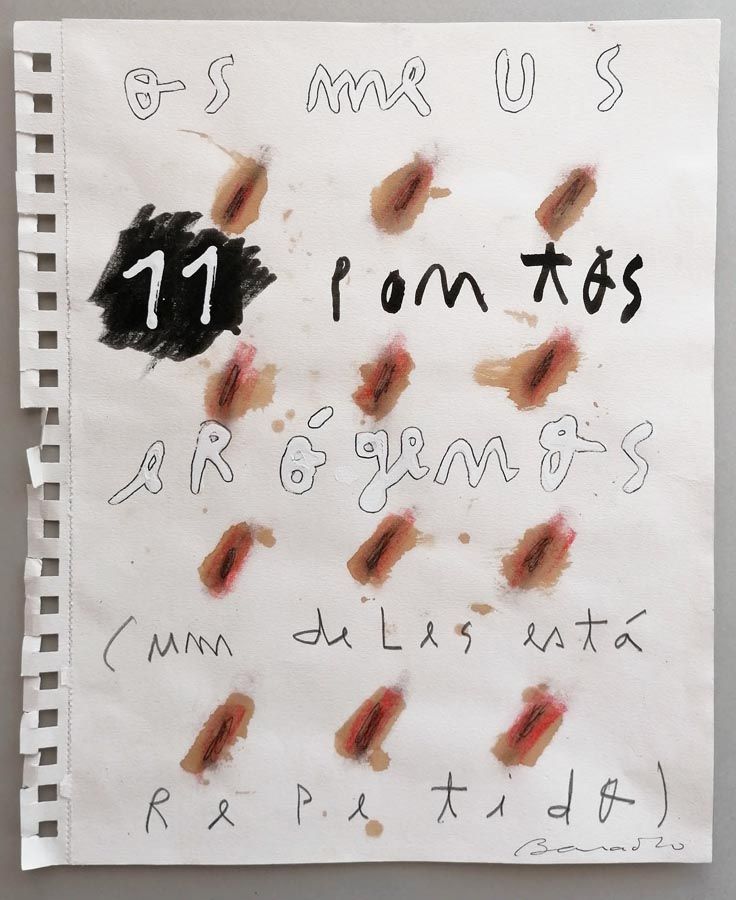 os meus
11 pontos
eRógenos
(um deles está
Repetido)